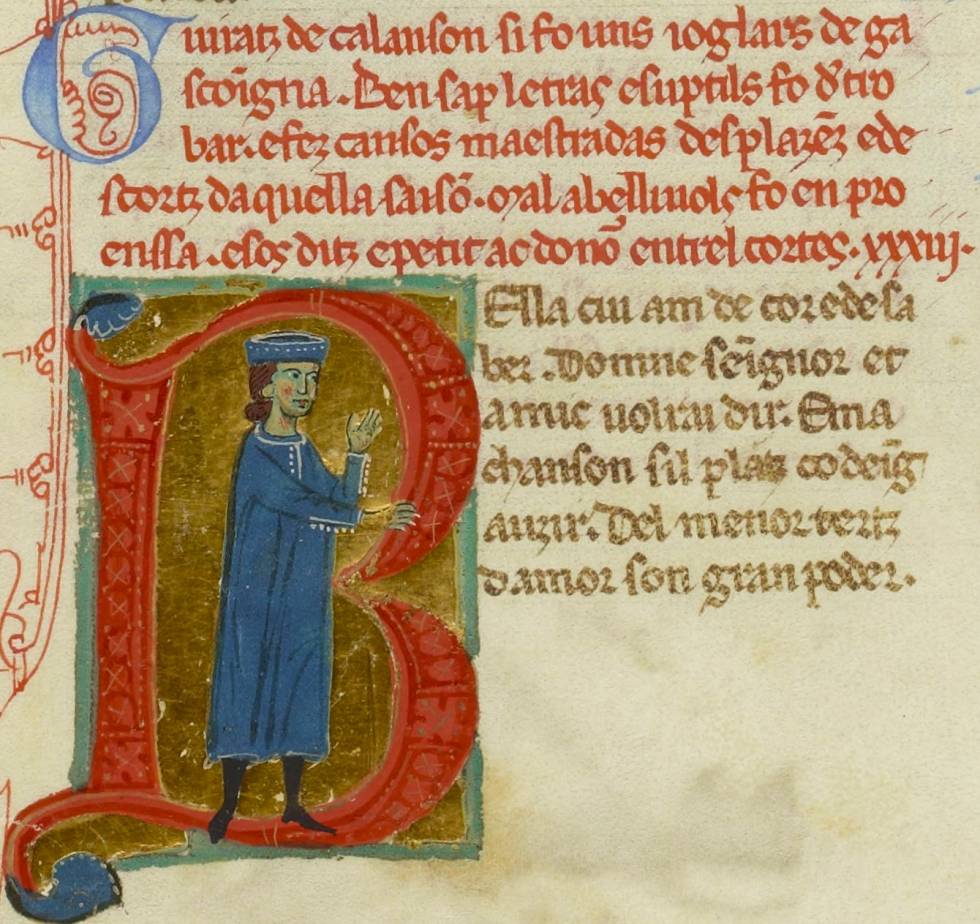 Guiratz de calanson si fo uns ioglars de ga
scōigna. Ben sap letras esuptils fo d'tro
bar. efez cansos maestradas desplazēz ede
scortz daquella saisō. Mal abelliuols fo en pro
enssa. esos ditz epetit ac donō entrel cortes. xxxiij.
BElla cui am de cor ede sa
ber. Domne señgnor et
amic uolrai dir. Ema
chanson sil platz co deīg
auzir. Del menor tertz
damor son gran poder.